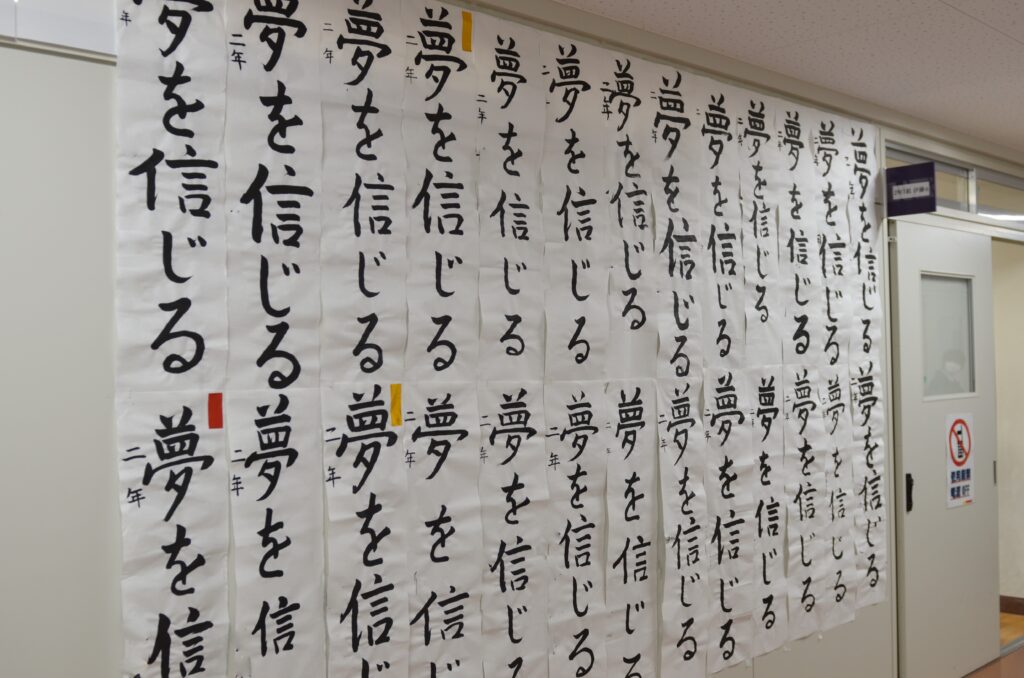 夢を信じる
二年
夢を信じる
二年
夢を信じる
二年
夢を信じる
二年
夢を信じる
二年
夢を信じる
二年
夢を信じる
二年
夢を信じる
二年
夢を信じる
二年
夢を信じる
二年
夢を信じる
二年
夢を信じる
二年
夢を信じる
年
夢を信じる
二年
夢を信じる
二年
夢を信じる
二年
夢を信じる
二年
夢を信じる
二年
夢を信じる
二年
夢を信じる
二年
夢を信じる
二年
夢を信じる
二年
夢を信じ
二年
夢を信じ
二年
夢を信
二年
夢を信
二年